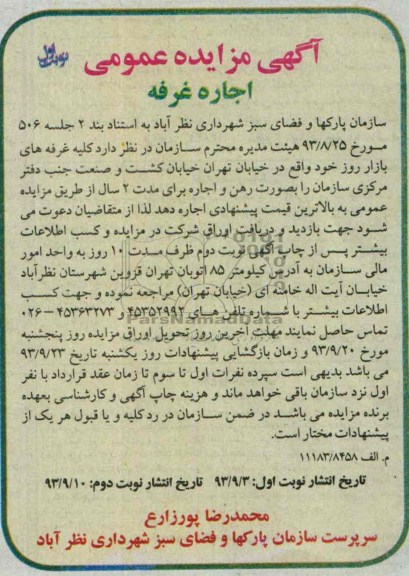 آگهی مزایده عمومی
نوبت اول
اجاره غرفه
سازمان پارکها و فضای سبز شهرداری نظر آباد به استناد بند ۲ جلسه ۵۰۶
مورخ ۹۳/۸/۲۵ هیئت مدیره محترم سازمان در نظر دارد کلیه غرفه های
بازار روز خود واقع در خیابان تهران خیابان کشت و صنعت جنب دفتر
مرکزی سازمان را بصورت رهن و اجاره برای مدت ۲ سال از طریق مزایده
عمومی به بالاترین قیمت پیشنهادی اجاره دهد لذا از متقاضیان دعوت می
شود جهت بازدید و دریافت اوراق شرکت در مزایده و کسب اطلاعات
بیشتر پس از چاپ آگهی نوبت دوم ظرف مدت ۱۰ روز به واحد امور
مالی سازمان به آدرس کیلومتر ۸۵ اتوبان تهران قزوین شهرستان نظرآباد
خیابان آیت اله خامنه ای (خیابان تهران) مراجعه نموده و جهت کسب
اطلاعات بیشتر با شماره تلفن های ۴۵۳۵۲۹۹۲ و ۴۵۳۶۳۲۷۳ – ۰۲۶
تماس حاصل نمایند مهلت آخرین روز تحویل اوراق مزایده روز پنجشنبه
مورخ ۹۳/۹/۲۰ و زمان بازگشایی پیشنهادات روز یکشنبه تاریخ ۹۳/۹/۲۳
می باشد بدیهی است سپرده نفرات اول تا سوم تا زمان عقد قرارداد با نفر
اول نزد سازمان باقی خواهد ماند و هزینه چاپ آگهی و کارشناسی بعهده
برنده مزایده می باشد در ضمن سازمان در رد کلیه و یا قبول هر یک از
پیشنهادات مختار است.
م. الف ۱۱۱۸۳/۸۴۵۸
تاریخ انتشار نوبت اول: ۹۳/۹/۳ تاریخ انتشار نوبت دوم: ۹۳/۹/۱۰
محمدرضا پورزارع
سرپرست سازمان پارکها و فضای سبز شهرداری نظر آباد
ParsNamadData